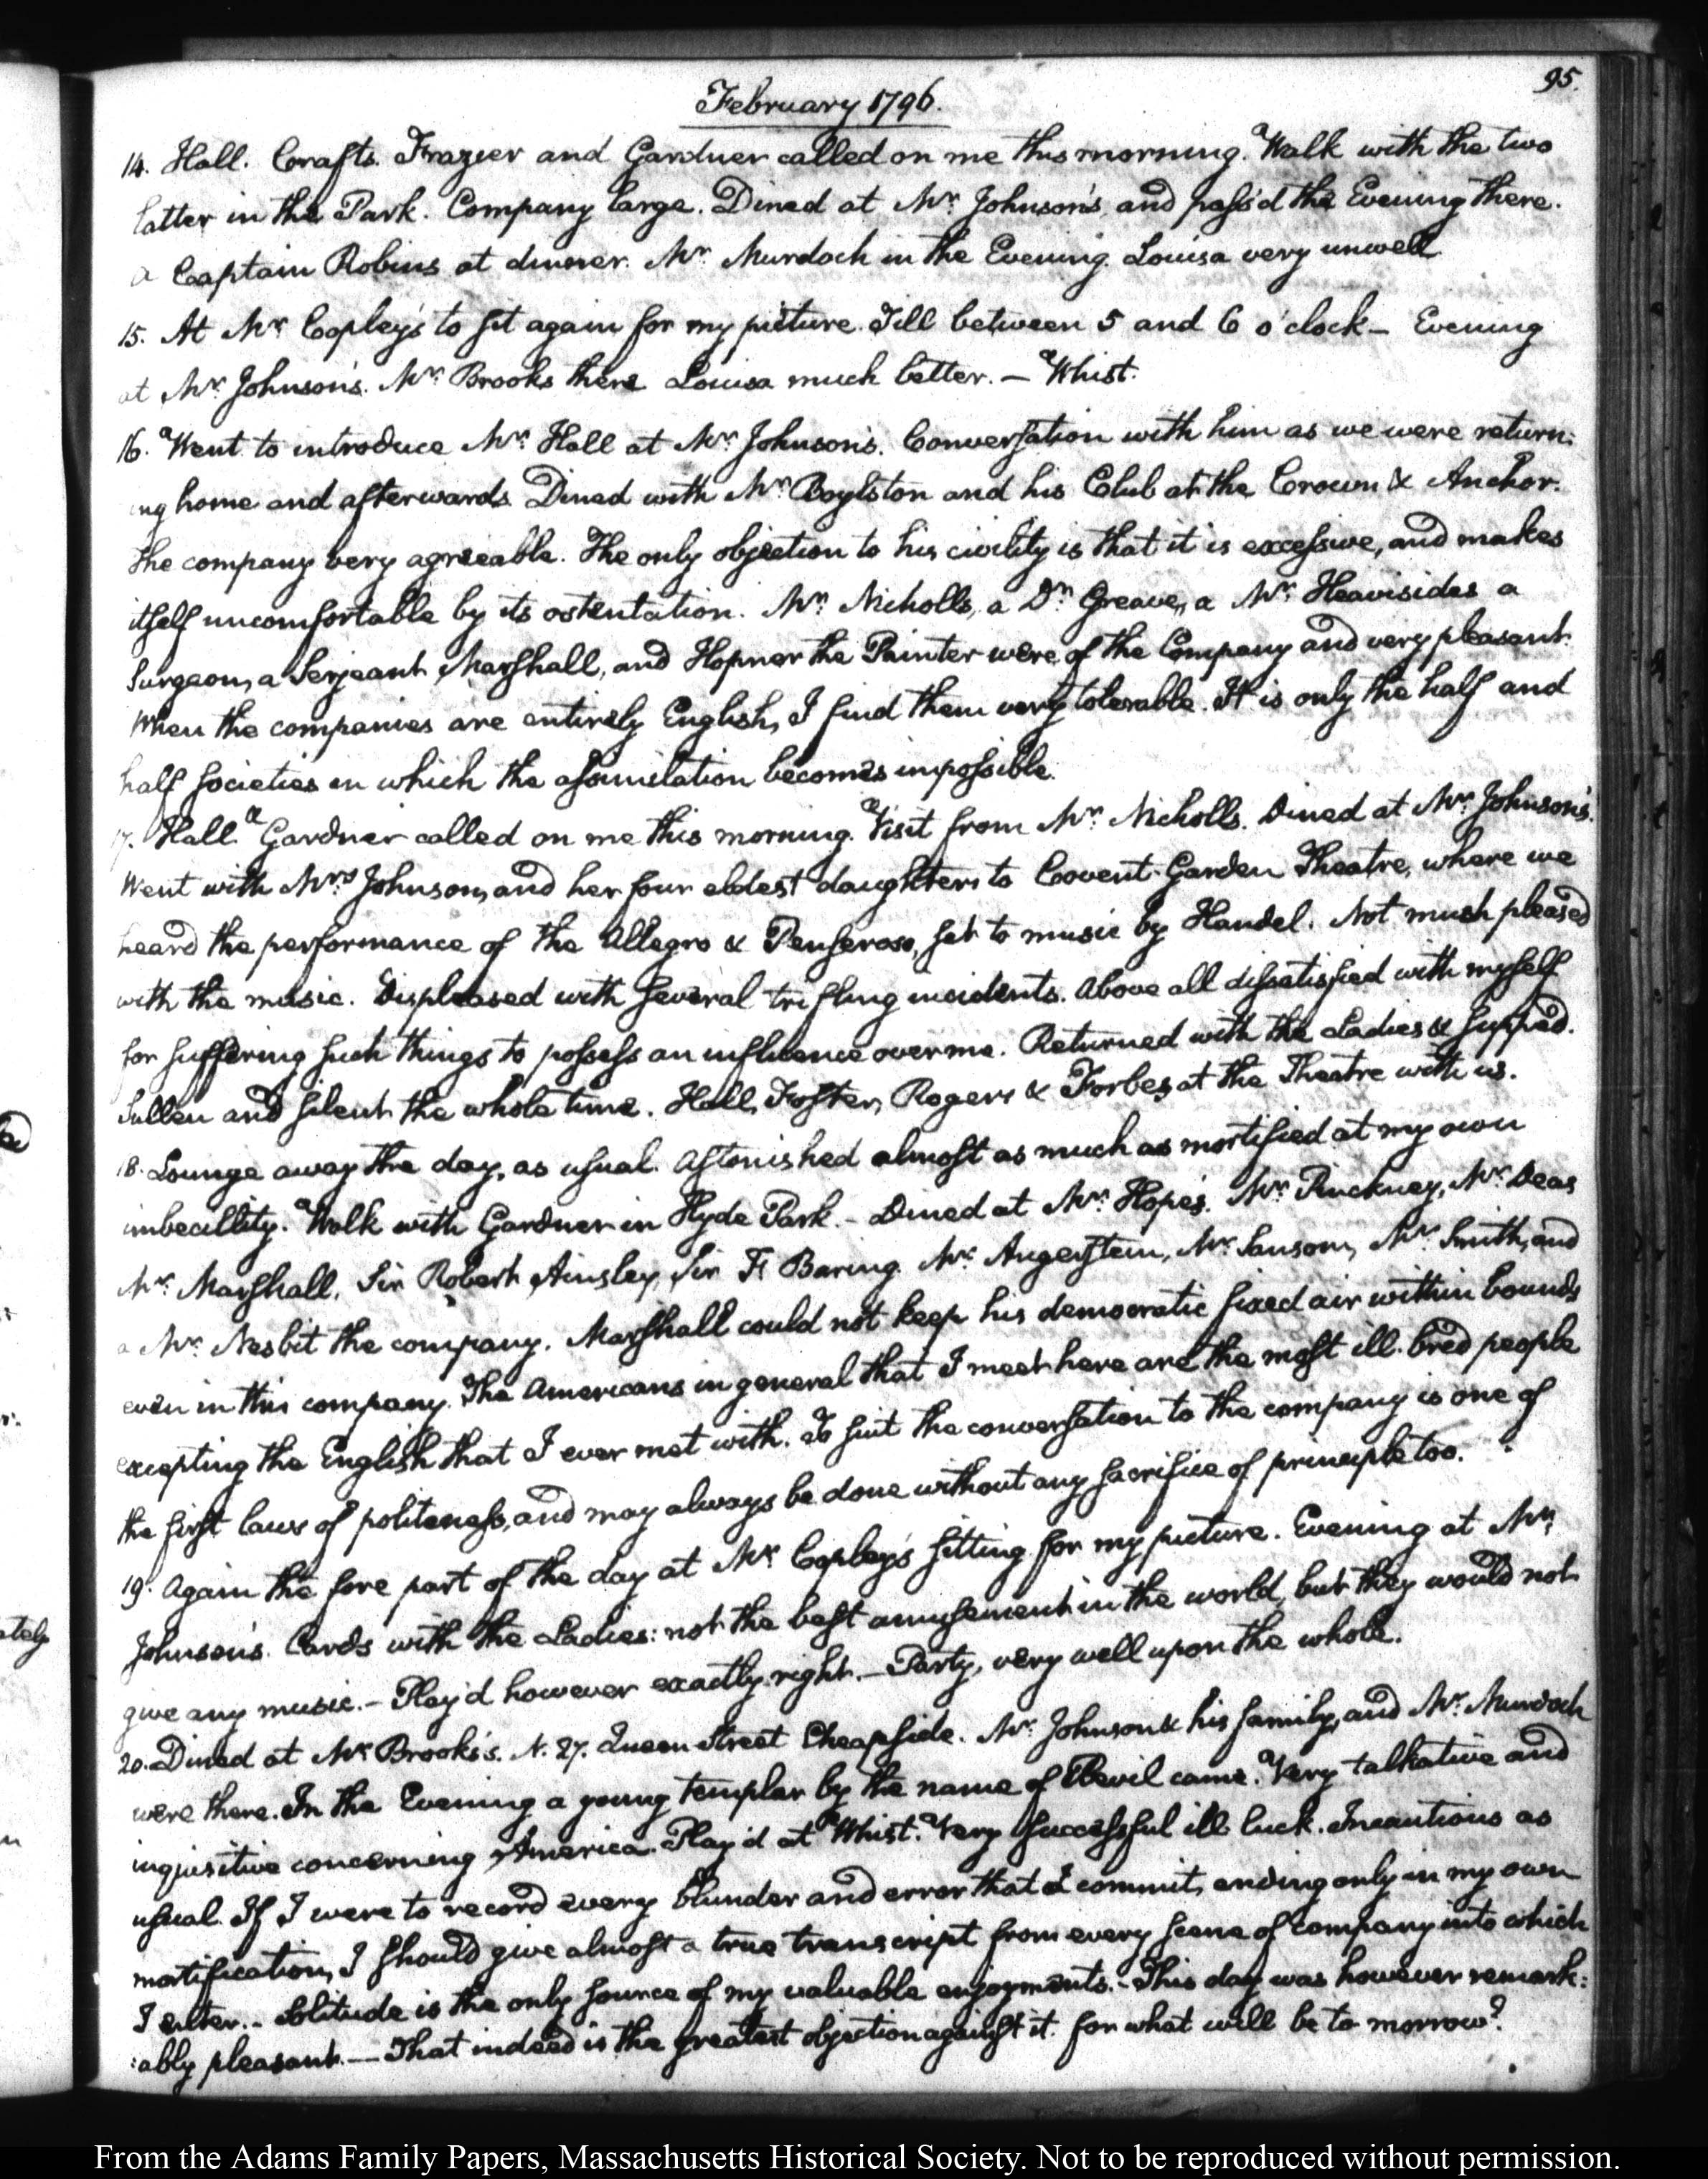 95.
February 1796.
14. Hall. Crafts. Frazier and Gardner called on me this morning. Walk with the two
latter in the Park. Company large. Dined at Mr. Johnson's, and pass'd the Evening there.
a Captain Robins at dinner. Mr. Murdoch in the Evening. Louisa very unwell.
15. At Mr. Copley's to sit again for my picture. Till between 5 and 6 o'clock — Evening
at Mr. Johnson's. Mr. Brooks there Louisa much better. — Whist.
16. Went to introduce Mr. Hall at Mr. Johnson's. Conversation with him as we were return:
ing home and afterwards. Dined with Mr. Boylston and his Club at the Crown & Anchor.
the company very agreeable. The only objection to his civility is that it is excessive, and makes
itself uncomfortable by its ostentation. Mr. Nicholls, a Dr. Greave, a Mr. Heavisides a
Surgeon, a Serjeant Marshall, and Hopner the Painter were of the Company and very pleasant.
When the companies are entirely English, I find them very tolerable. It is only the half and
half societies in which the assimilation becomes impossible.
17. Hall. Gardner called on me this morning. Visit from Mr. Nicholls. Dined at Mr. Johnson's.
Went with Mrs. Johnson, and her four eldest daughters to Covent-Garden Theatre, where we
heard the performance of the Allegro & Penseroso, set to music by Handel. Not much pleased
with the music. Displeased with several trifling incidents. Above all dissatisfied with myself
for suffering such things to possess an influence over me. Returned with the Ladies & supped.
Sullen and silent the whole time. Hall, Foster, Rogers & Forbes at the Theatre with us.
18. Lounge away the day, as usual. Astonished almost as much as mortified at my own
imbecillity. Walk with Gardner in Hyde Park. - Dined at Mr. Hope's. Mr. Pinckney, Mr. Deas
Mr. Marshall, Sir Robert Ainsley, Sir Fs. Baring. Mr. Angerstein, Mr. Sansom, Mr. Smith, and
a Mr. Nesbit the company. Marshall could not keep his democratic fixed air within bounds
even in this company. The Americans in general that I meet here are the most ill-bred people
excepting the English that I ever met with. To suit the conversation to the company is one of
the first laws of politeness, and may always be done without any sacrifice of principle too.
19. Again the fore part of the day at Mr. Copley's sitting for my picture. Evening at Mr.
Johnson's. Cards with the Ladies: not the best amusement in the world, but they would not
give any music. - Play'd however exactly right. - Party, very well upon the whole.
20. Dined at Mr. Brooks's. N. 27. Queen Street Cheapside. Mr. Johnson & his family, and Mr. Murdoch
were there. In the Evening a young templar by the name of came. Very talkative and
inquisitive concerning America. Play'd at Whist. Very successful ill luck. Incautious as
usual. If I were to record every blunder and error that I commit, ending only in my own
mortification, I should give almost a true transcript from every scene of company into which
I enter. - Solitude is the only source of my valuable enjoyments. - This day was however remark:
:ably pleasant. — That indeed is the greatest objection against it. for what will be to morrow?
From the Adams Family Papers, Massachusetts Historical Society. Not to be reproduced without permission.